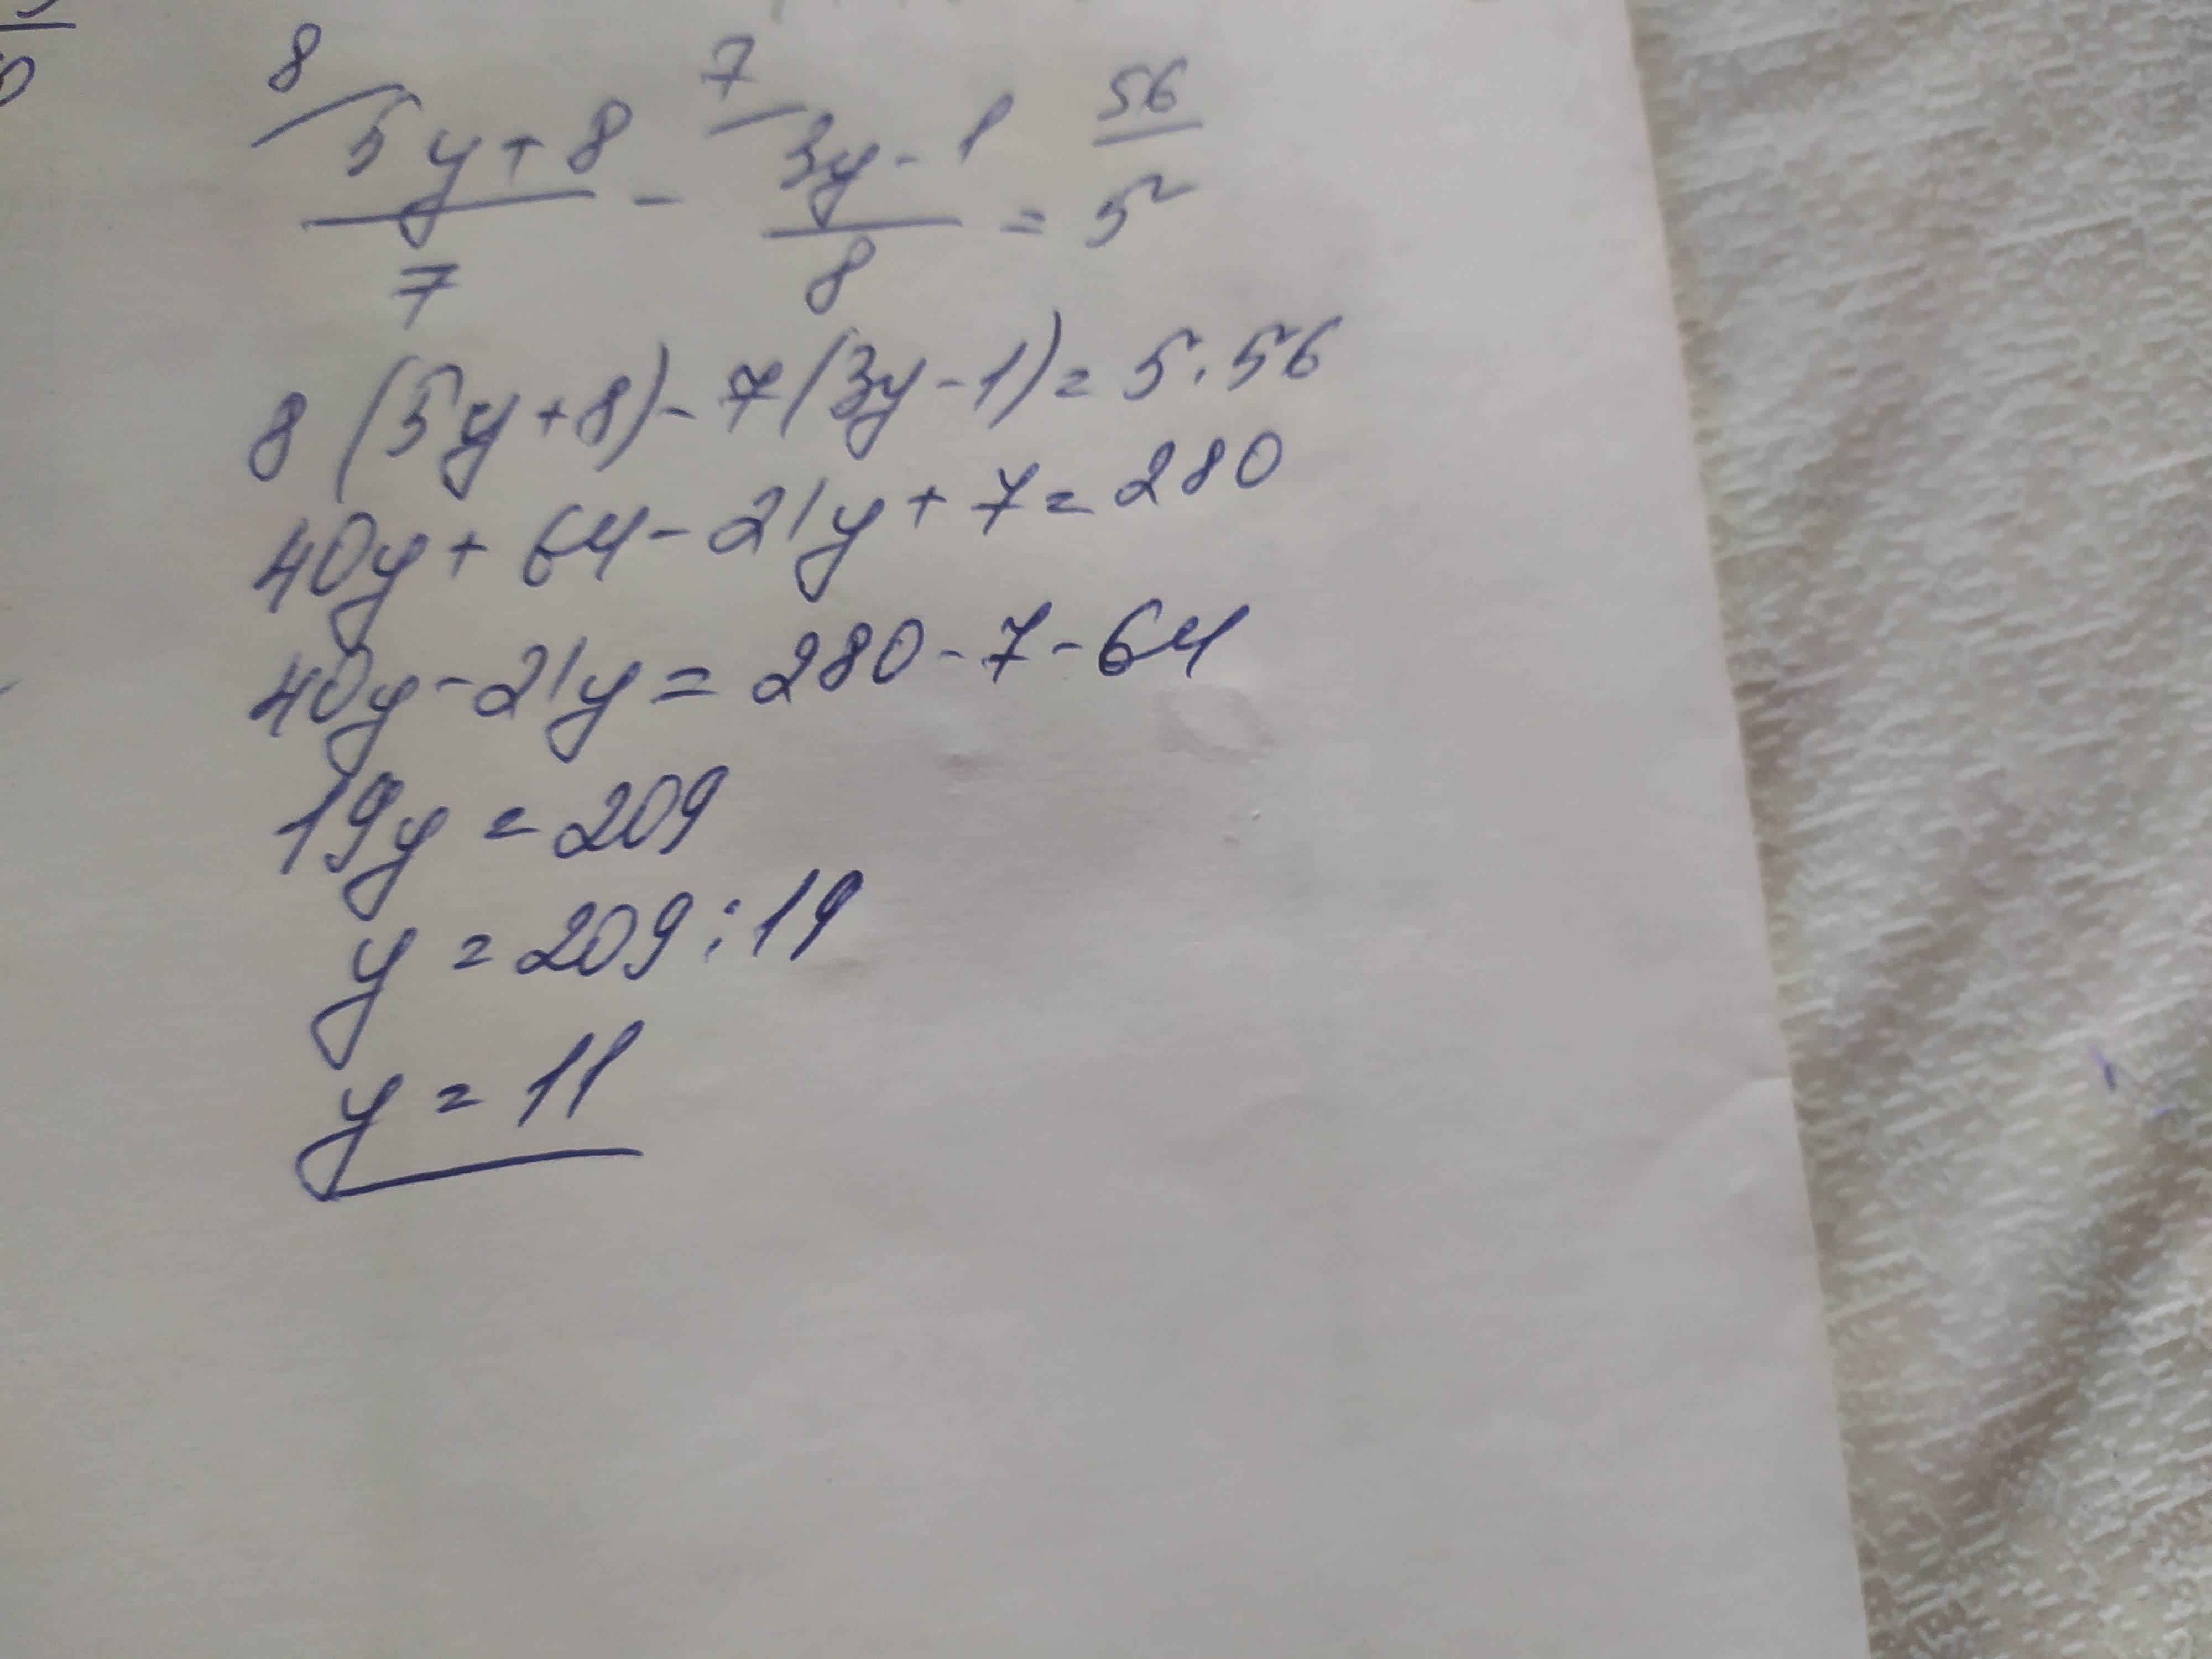 8 7 56
5y+8 - 3y-1 = 5
7 8
8(5y+8)-7(3y-1)=5.56
40y+64-21y+7=280
40y-21y=280-7-64
19y=209
y=209:19
y=11